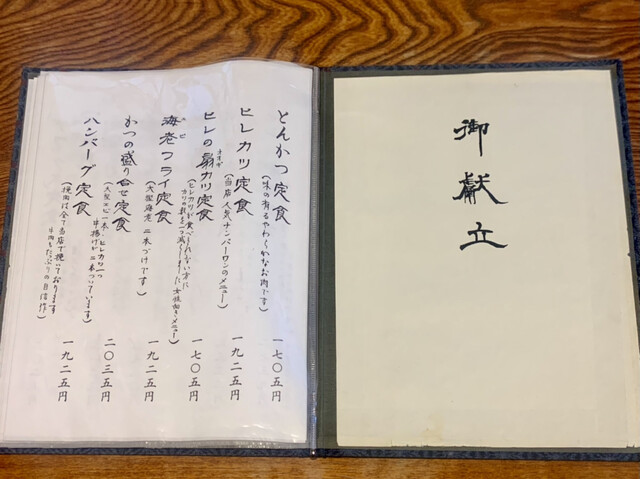 御献立
とんかつ定食
(味の有るやわらかなお肉です)
一七〇五円
ヒレカツ定食
(当店人気ナンバーワンのメニュー)
一九二五円
ヒレの
カツ定食
(ヒレカツが食べきれない方に
カツの数を一つ減らしました女性向きメニュー)
一七〇五円
エビ
海老フライ定食
(大型海老二本づけです)
一九二五円
かつの盛り合せ定食
(大型エビ一本、ヒレカツ一つ
串揚げが二本ついています)
二〇三五円
ハンバーグ定食
(挽肉は全て当店で挽いております
牛肉もたっぷりの自信作)
一九二五円